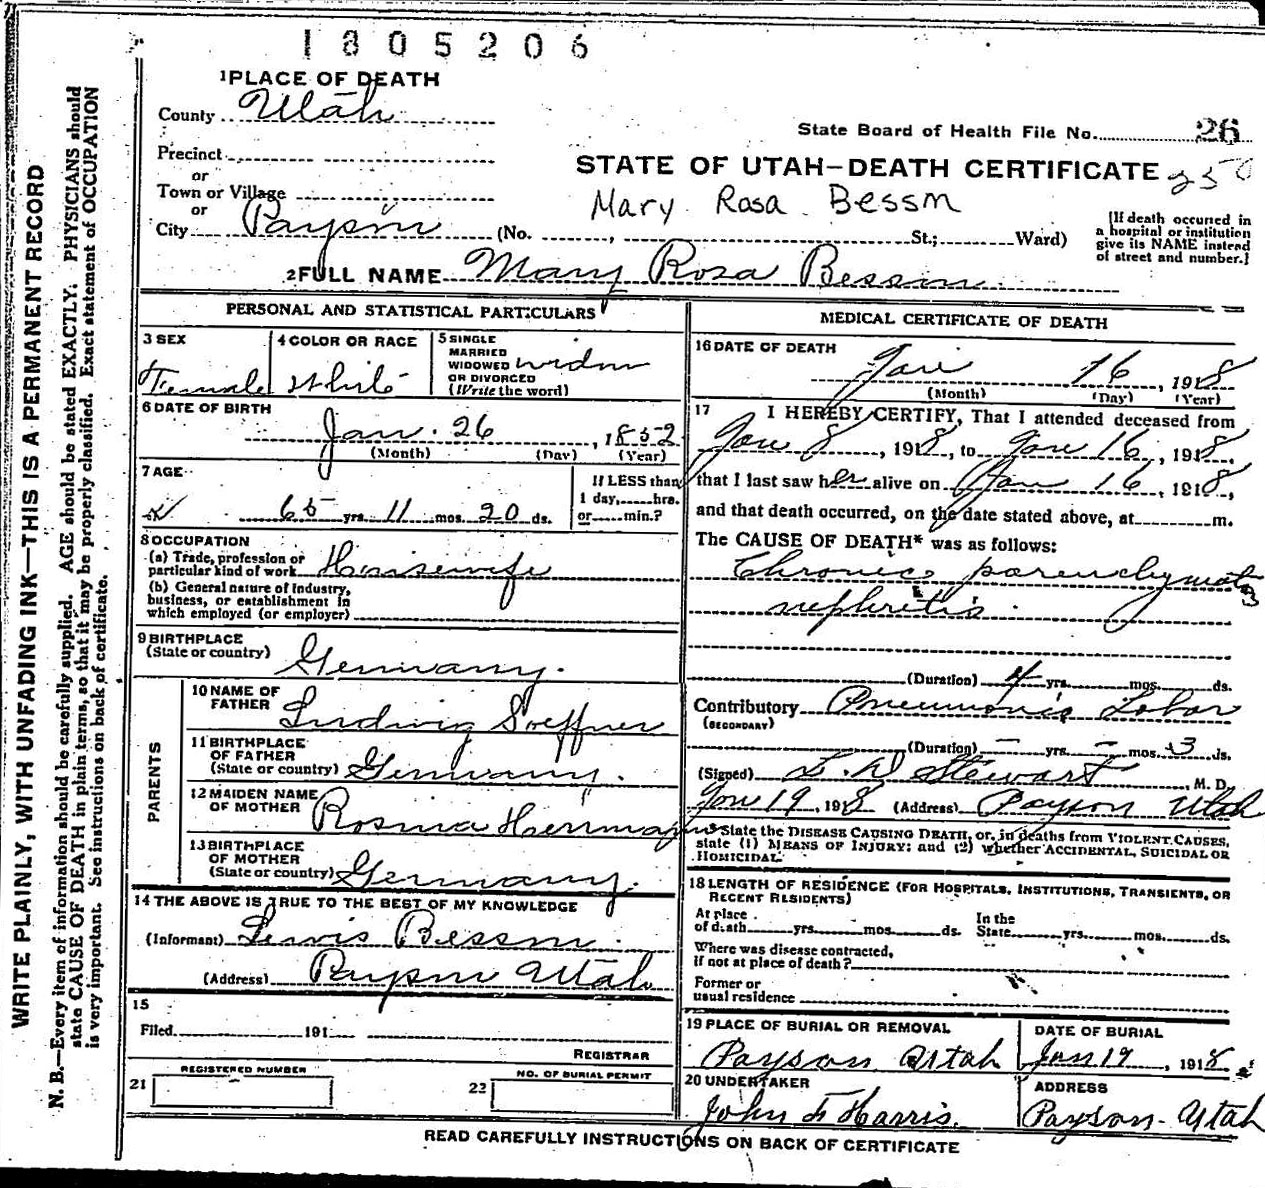 1805206
1 PLACE OF DEATH
County Utah
State Board of Health File No. 26
Precinct
or
STATE OF UTAH—DEATH CERTIFICATE 250
Town or Village
Mary Rosa Bessm
or
City Payson (No. , St.; Ward)
[If death occurred in
a hospital or institution
give its NAME instead
of street and number.]
2 FULL NAME Mary Rosa Bessm
PERSONAL AND STATISTICAL PARTICULARS
3 SEX
Female
4 COLOR OR RACE
White
5 SINGLE
MARRIED
WIDOWED widow
OR DIVORCED
(Write the word)
6 DATE OF BIRTH
Jan. 26, 1852
(Month) (Day) (Year)
7 AGE
65 yrs. 11 mos. 20 ds.
If LESS than
1 day, hrs.
or min.?
8 OCCUPATION
(a) Trade, profession or
particular kind of work Housewife
(b) General nature of Industry,
business, or establishment in
which employed (or employer)
9 BIRTHPLACE
(State or country) Germany.
PARENTS
10 NAME OF
FATHER Ludwig Soeffner
11 BIRTHPLACE
OF FATHER
(State or country) Germany.
12 MAIDEN NAME
OF MOTHER Rosina Herrmann
13 BIRTHPLACE
OF MOTHER
(State or country) Germany.
14 THE ABOVE IS TRUE TO THE BEST OF MY KNOWLEDGE
(Informant) Lewis Bessm.
(Address) Payson Utah
15
Filed 191
REGISTRAR
REGISTERED NUMBER
21
NO. OF BURIAL PERMIT
22
MEDICAL CERTIFICATE OF DEATH
16 DATE OF DEATH
Jan 16, 1918
(Month) (Day) (Year)
17 I HEREBY CERTIFY, That I attended deceased from
Jan 8, 1918, to Jan 16, 1918,
that I last saw her alive on Jan 16, 1918,
and that death occurred, on the date stated above, at m.
The CAUSE OF DEATH* was as follows:
Chronic parenchymatos
nephretis.
(Duration) 4 yrs. mos. ds.
Contributory Pneumonia Lobar
(SECONDARY)
(Duration) – yrs. – mos. 3 ds.
(Signed) L. D Stewart, M. D.
Jan 19, 1918 (Address) Payson Utah
*State the DISEASE CAUSING DEATH, or, in deaths from VIOLENT CAUSES,
state (1) MEANS OF INJURY; and (2) whether ACCIDENTAL, SUICIDAL OR
HOMICIDAL.
18 LENGTH OF RESIDENCE (FOR HOSPITALS, INSTITUTIONS, TRANSIENTS, OR
RECENT RESIDENTS)
At place
of death yrs. mos. ds.
In the
State yrs. mos. ds.
Where was disease contracted,
if not at place of death?
Former or
usual residence
19 PLACE OF BURIAL OR REMOVAL
Payson Utah
DATE OF BURIAL
Jan 19, 1918
20 UNDERTAKER
John F Harris.
ADDRESS
Payson. Utah
READ CAREFULLY INSTRUCTIONS ON BACK OF CERTIFICATE
WRITE PLAINLY, WITH UNFADING INK—THIS IS A PERMANENT RECORD
N. B.—Every item of information should be carefully supplied. AGE should be stated EXACTLY. PHYSICIANS should
state CAUSE OF DEATH in plain terms, so that it may be properly classified. Exact statement of OCCUPATION
is very important. See instructions on back of certificate.